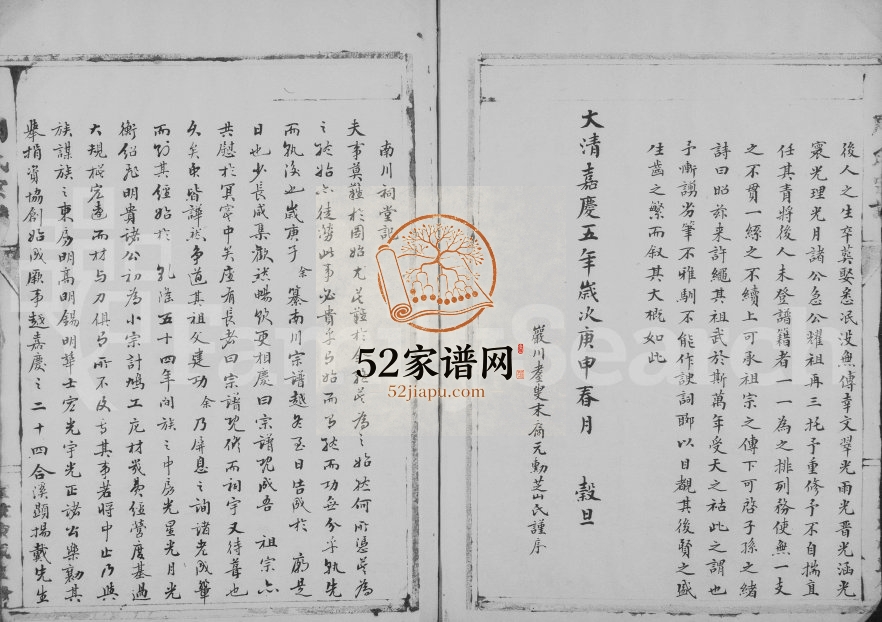 後人之生卒莫娶悉泯没無傳幸文翠光雨光晋光涵光
寰光理光月諸公急公耀祖再三托予重修予不自揣直
任其責將後人未登譜籍者一一為之排列務使無一支
之不貫一絲之不續上可承祖宗之傳下可啓子孫之緒
詩曰昭茲来許繩其祖武於斯萬年受天之祜此之謂也
予慚謭劣筆不雅馴不能作諛詞聊以目覩其後賢之盛
生齒之繁而叙其大概如此
大清嘉慶五年歲次庚申春月 穀旦
巖川耋叟末裔元勳芝山氏謹序
南川祠堂記
夫事莫難於因始尤莫難於
之歲庚子余纂南川宗譜越冬至日告成於廟是
日也少長咸集歡然暢飲更相慶曰宗譜既成吾祖宗亦
共慰於冥冥中矣座有長者曰宗譜既修而祠宇又待葺也
久矣衆皆譁然争道其祖父建功余乃屏息之詢諸老成輩
而知其經始於乾隆五十四年間族之中房光星光月光
衡紹彩明貴諸公初為小宗計鳩工庀材最費經營度基過
大規模宏遠而材与力俱有所不及古其事若將中止乃與
族謀族之東房明高明錫明華士宏光宇光正諸公樂勷其
舉捐資協創始成厥事越嘉慶之二十四合溪顕揚戴先生
52家谱网
52jiapu.com